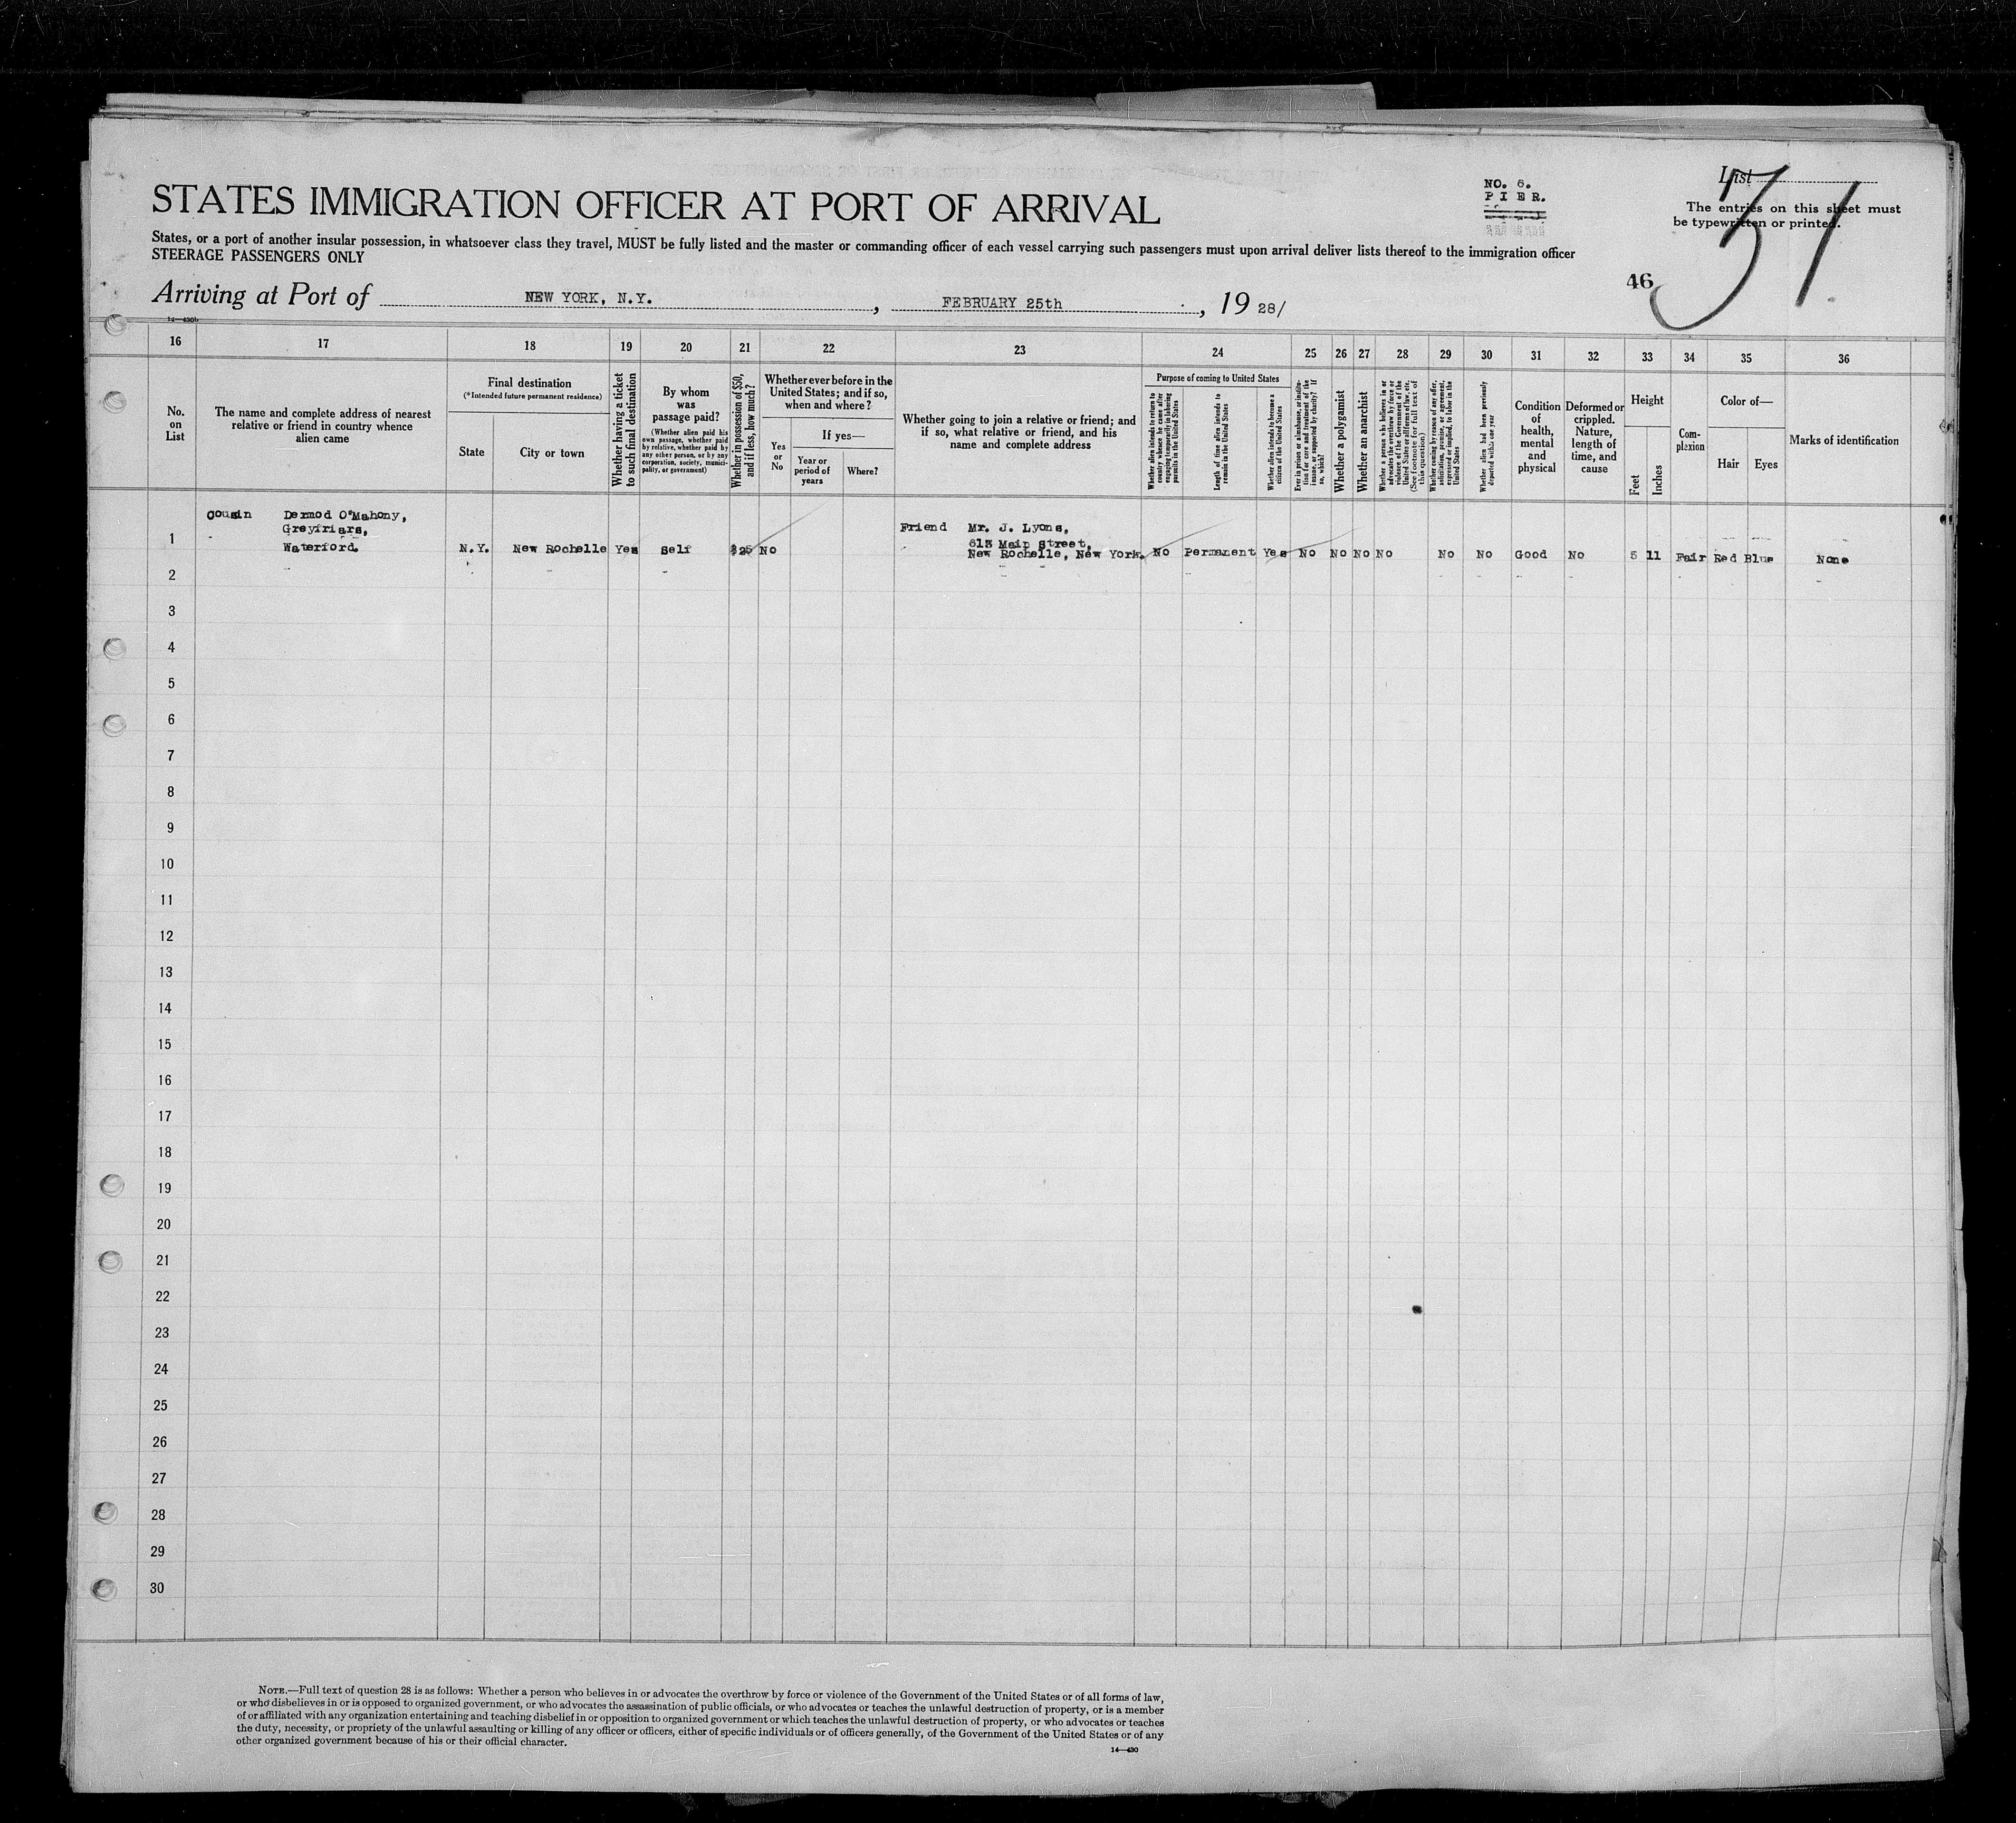 List
31
NO. 6.
PIER.
The entries on this sheet must
be typewritten or printed.
STATES IMMIGRATION OFFICER AT PORT OF ARRIVAL
States, or a port of another insular possession, in whatsoever class they travel, MUST be fully listed and the master or commanding officer of each vessel carrying such passengers must upon arrival deliver lists thereof to the immigration officer
STEERAGE PASSENGERS ONLY
46
Arriving at Port of NEW YORK, N.Y., FEBRUARY 25th, 19 28/
14—430b
16 17 18 19 20 21 22 23 24 25 26 27 28 29 30 31 32 33 34 35 36
No.
on
List
The name and complete address of nearest
relative or friend in country whence
alien came
Final destination
(*Intended future permanent residence)
State
City or town
Whether having a ticket
to such final destination
By whom
was
passage paid?
(Whether alien paid his
own passage, whether paid
by relative, whether paid by
any other person, or by any
corporation, society, munici-
pality, or government)
Whether in possession of $50,
and if less, how much?
Whether ever before in the
United States; and if so,
when and where?
Yes
or
No
If yes—
Year or
period of
years
Where?
Whether going to join a relative or friend; and
if so, what relative or friend, and his
name and complete address
Purpose of coming to United States
Whether alien intends to return to
country whence he came after
engaging temporarily in laboring
pursuits in the United States
Length of time alien intends to
remain in the United States
Whether alien intends to become a
citizen of the United States
Ever in prison or almshouse, or institu-
tion for care and treatment of the
insane, or supported by charity? If
so, which?
Whether a polygamist
Whether an anarchist
Whether a person who believes in or
advocates the overthrow by force or
violence of the Government of the
United States or all forms of law, etc.
(See footnote for full text of
this question)
Whether coming by reason of any offer,
solicitation, promise, or agreement,
expressed or implied, to labor in the
United States
Whether alien had been previously
deported within one year
Condition
of
health,
mental
and
physical
Deformed or
crippled.
Nature,
length of
time, and
cause
Height
Feet
Inches
Com-
plexion
Color of—
Hair
Eyes
Marks of identification
Cousin Dermod O'Mahony,
Greyfriars,
Waterford.
Friend Mr. J. Lyons,
613 Main Street,
New Rochelle, New York.
1 N.Y. New Rochelle Yes Self $25 No No Permanent Yes No No No No No No Good No 5 11 Fair Red Blue None
2
3
4
5
6
7
8
9
10
11
12
13
14
15
16
17
18
19
20
21
22
23
24
25
26
27
28
29
30
NOTE.—Full text of question 28 is as follows: Whether a person who believes in or advocates the overthrow by force or violence of the Government of the United States or of all forms of law,
or who disbelieves in or is opposed to organized government, or who advocates the assassination of public officials, or who advocates or teaches the unlawful destruction of property, or is a member
of or affiliated with any organization entertaining and teaching disbelief in or opposition to organized government or which teaches the unlawful destruction of property, or who advocates or teaches
the duty, necessity, or propriety of the unlawful assaulting or killing of any officer or officers, either of specific individuals or of officers generally, of the Government of the United States or of any
other organized government because of his or their official character.
14—430